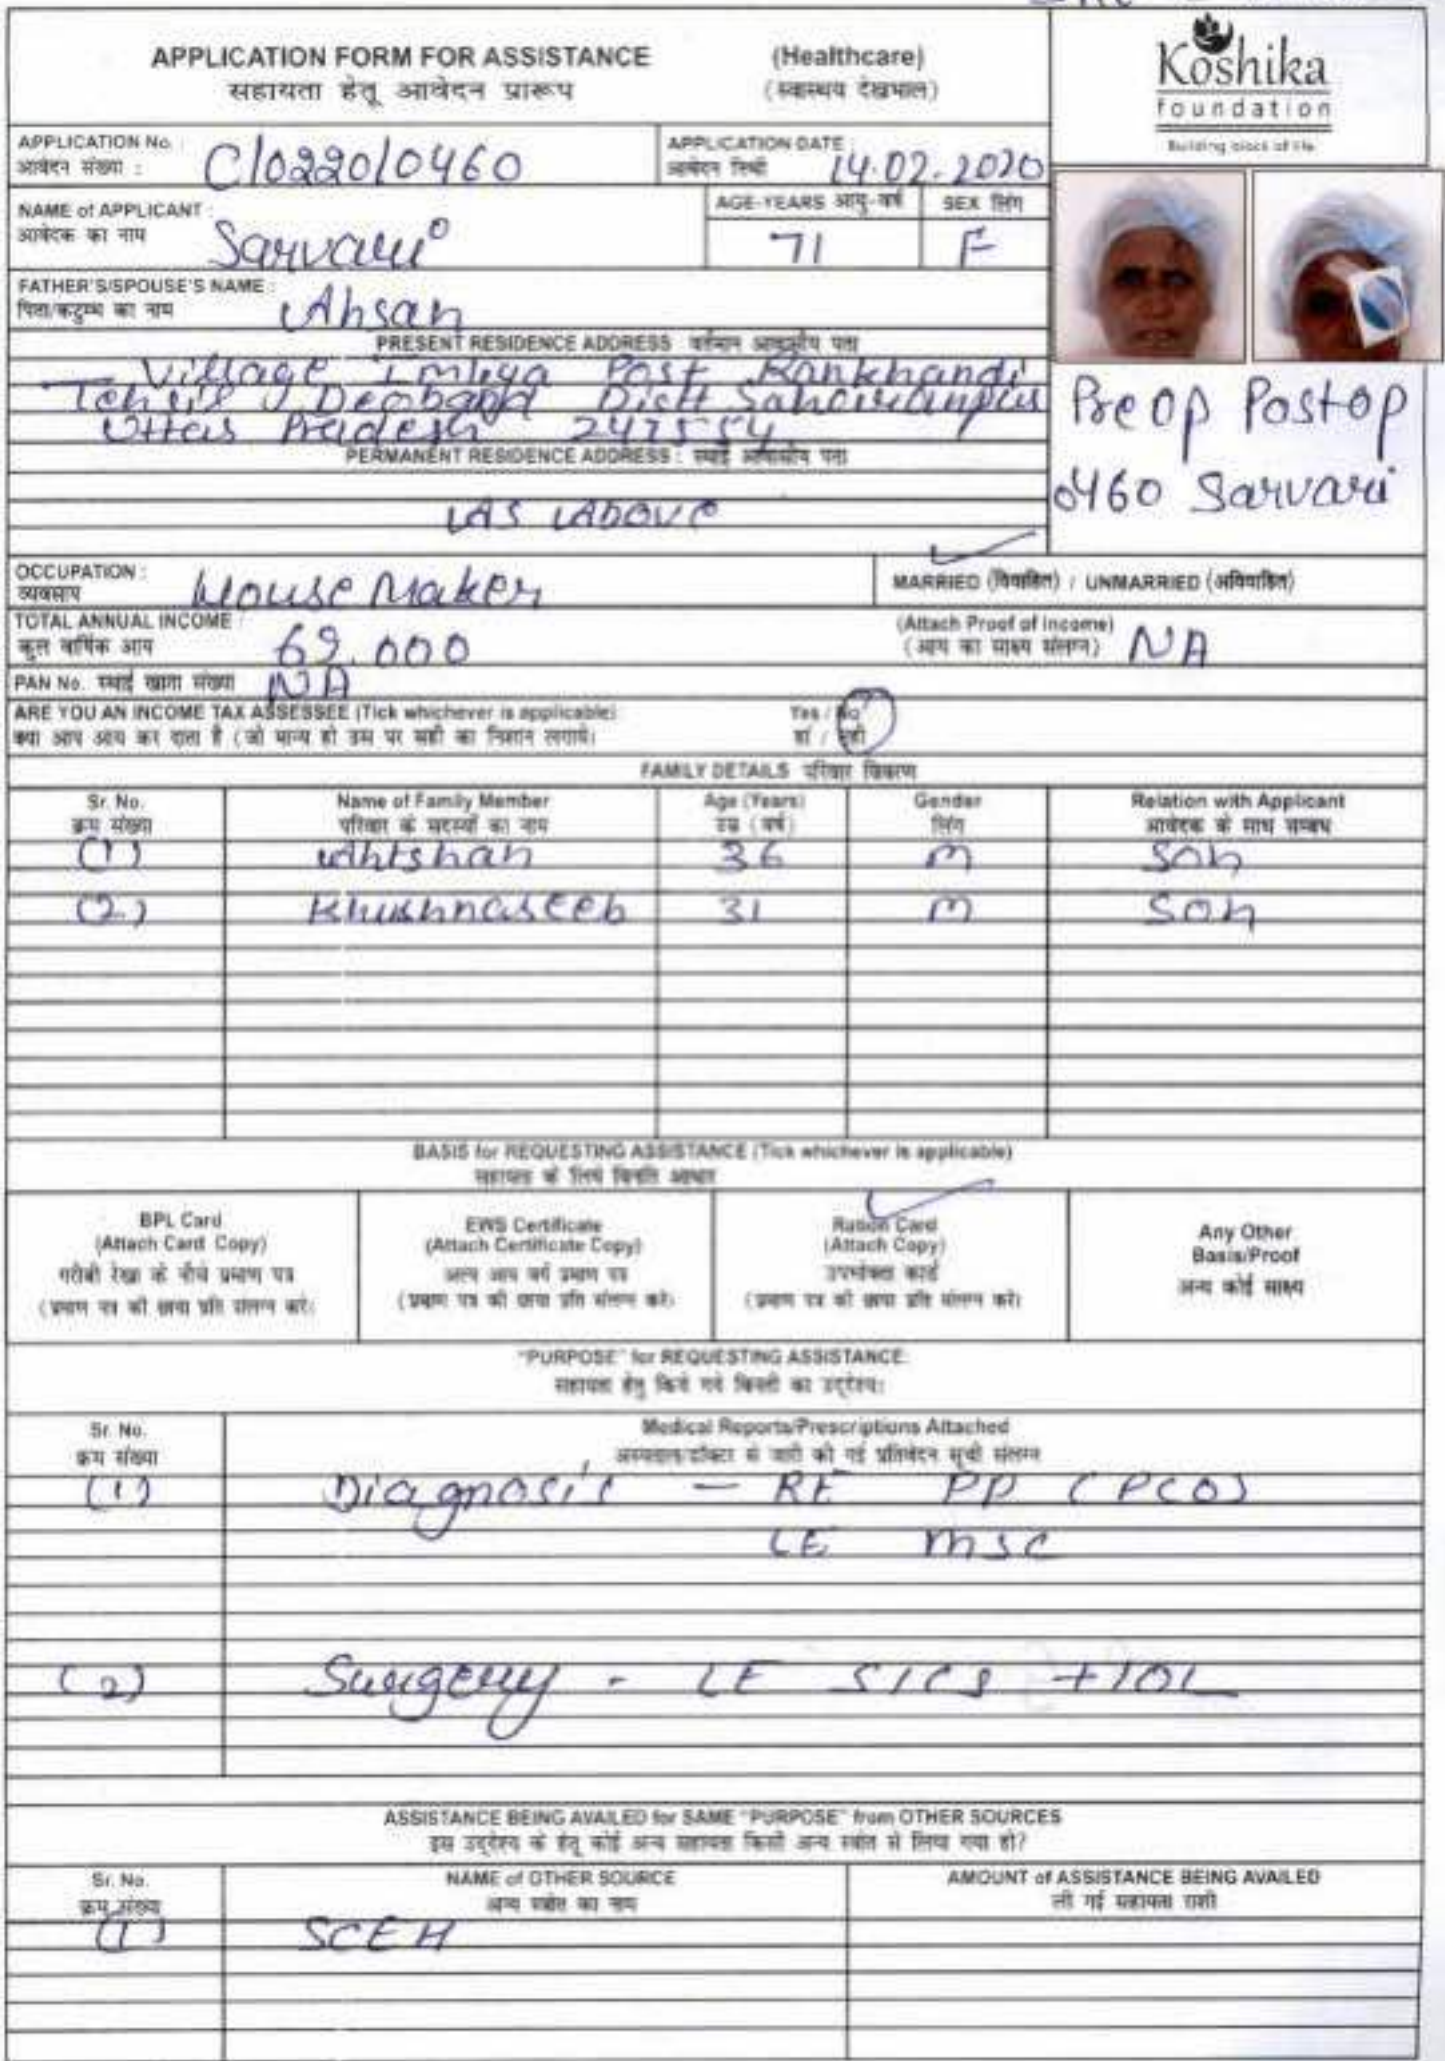 APPLICATION FORM FOR ASSISTANCE (Healthcare)
सहायता हेतू आवेदन प्रारूप (स्वास्थय देखभाल)
Koshika
foundation
Building block of life
APPLICATION No. : C/0220/0460
आवेदन संख्या :
APPLICATION DATE : 14.02.2020
आवेदन तिथी
NAME of APPLICANT : Sarvari
आवेदक का नाम
AGE-YEARS आयु-वर्ष 71
SEX लिंग F
FATHER'S/SPOUSE'S NAME : Ahsan
पिता/कटुम्ब का नाम
PRESENT RESIDENCE ADDRESS वर्तमान आवासीय पता
Village Imliya Post Rankhandi
Tehsil Deoband Distt Saharanpur
Uttar Pradesh 247554
PERMANENT RESIDENCE ADDRESS : स्थाई आवासीय पता
As Above
Preop Postop
0460 Sarvari
OCCUPATION : House Maker
व्यवसाय
MARRIED (विवाहित) / UNMARRIED (अविवाहित)
TOTAL ANNUAL INCOME : 69.000
कुल वार्षिक आय
(Attach Proof of Income) NA
(आय का साक्ष्य संलग्न)
PAN No. स्थाई खाता संख्या NA
ARE YOU AN INCOME TAX ASSESSEE (Tick whichever is applicable) Yes / No
क्या आप आय कर दाता है (जो मान्य हो उस पर सही का निशान लगाये) हां / नही
FAMILY DETAILS परिवार विवरण
Sr. No. Name of Family Member Age (Years) Gender Relation with Applicant
क्रम संख्या परिवार के सदस्यों का नाम उम्र (वर्ष) लिंग आवेदक के साथ सम्बंध
(1) Ahtshan 36 M Son
(2) Khushnaseeb 31 M Son
BASIS for REQUESTING ASSISTANCE (Tick whichever is applicable)
सहायता के लिये विनति आधार
BPL Card
(Attach Card Copy)
गरीबी रेखा के नीचे प्रमाण पत्र
(प्रमाण पत्र की छाया प्रति संलग्न करे)
EWS Certificate
(Attach Certificate Copy)
अल्प आय वर्ग प्रमाण पत्र
(प्रमाण पत्र की छाया प्रति संलग्न करे)
Ration Card
(Attach Copy)
उपभोक्ता कार्ड
(प्रमाण पत्र की छाया प्रति संलग्न करे)
Any Other
Basis/Proof
अन्य कोई साक्ष्य
"PURPOSE" for REQUESTING ASSISTANCE:
सहायता हेतु किये गये विनती का उद्देश्य:
Sr. No. Medical Reports/Prescriptions Attached
क्रम संख्या अस्पताल/डॉक्टर से जारी की गई प्रतिवेदन सूची संलग्न
(1) Diagnosis - RE PP (PCO)
LE MSC
(2) Surgery - LE SICS + IOL
ASSISTANCE BEING AVAILED for SAME "PURPOSE" from OTHER SOURCES
इस उद्देश्य के हेतू कोई अन्य सहायता किसी अन्य स्त्रोत से लिया गया हो?
Sr. No. NAME of OTHER SOURCE AMOUNT of ASSISTANCE BEING AVAILED
क्रम संख्या अन्य स्त्रोत का नाम ली गई सहायता राशी
(1) SCEH